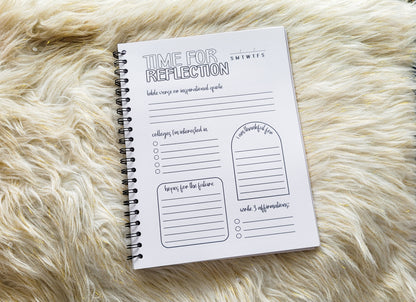 TIME FOR
REFLECTION
S M T W T F S
bible verse or inspirational quote
colleges i'm interested in
i am thankful for
hopes for the future
write 3 affirmations: